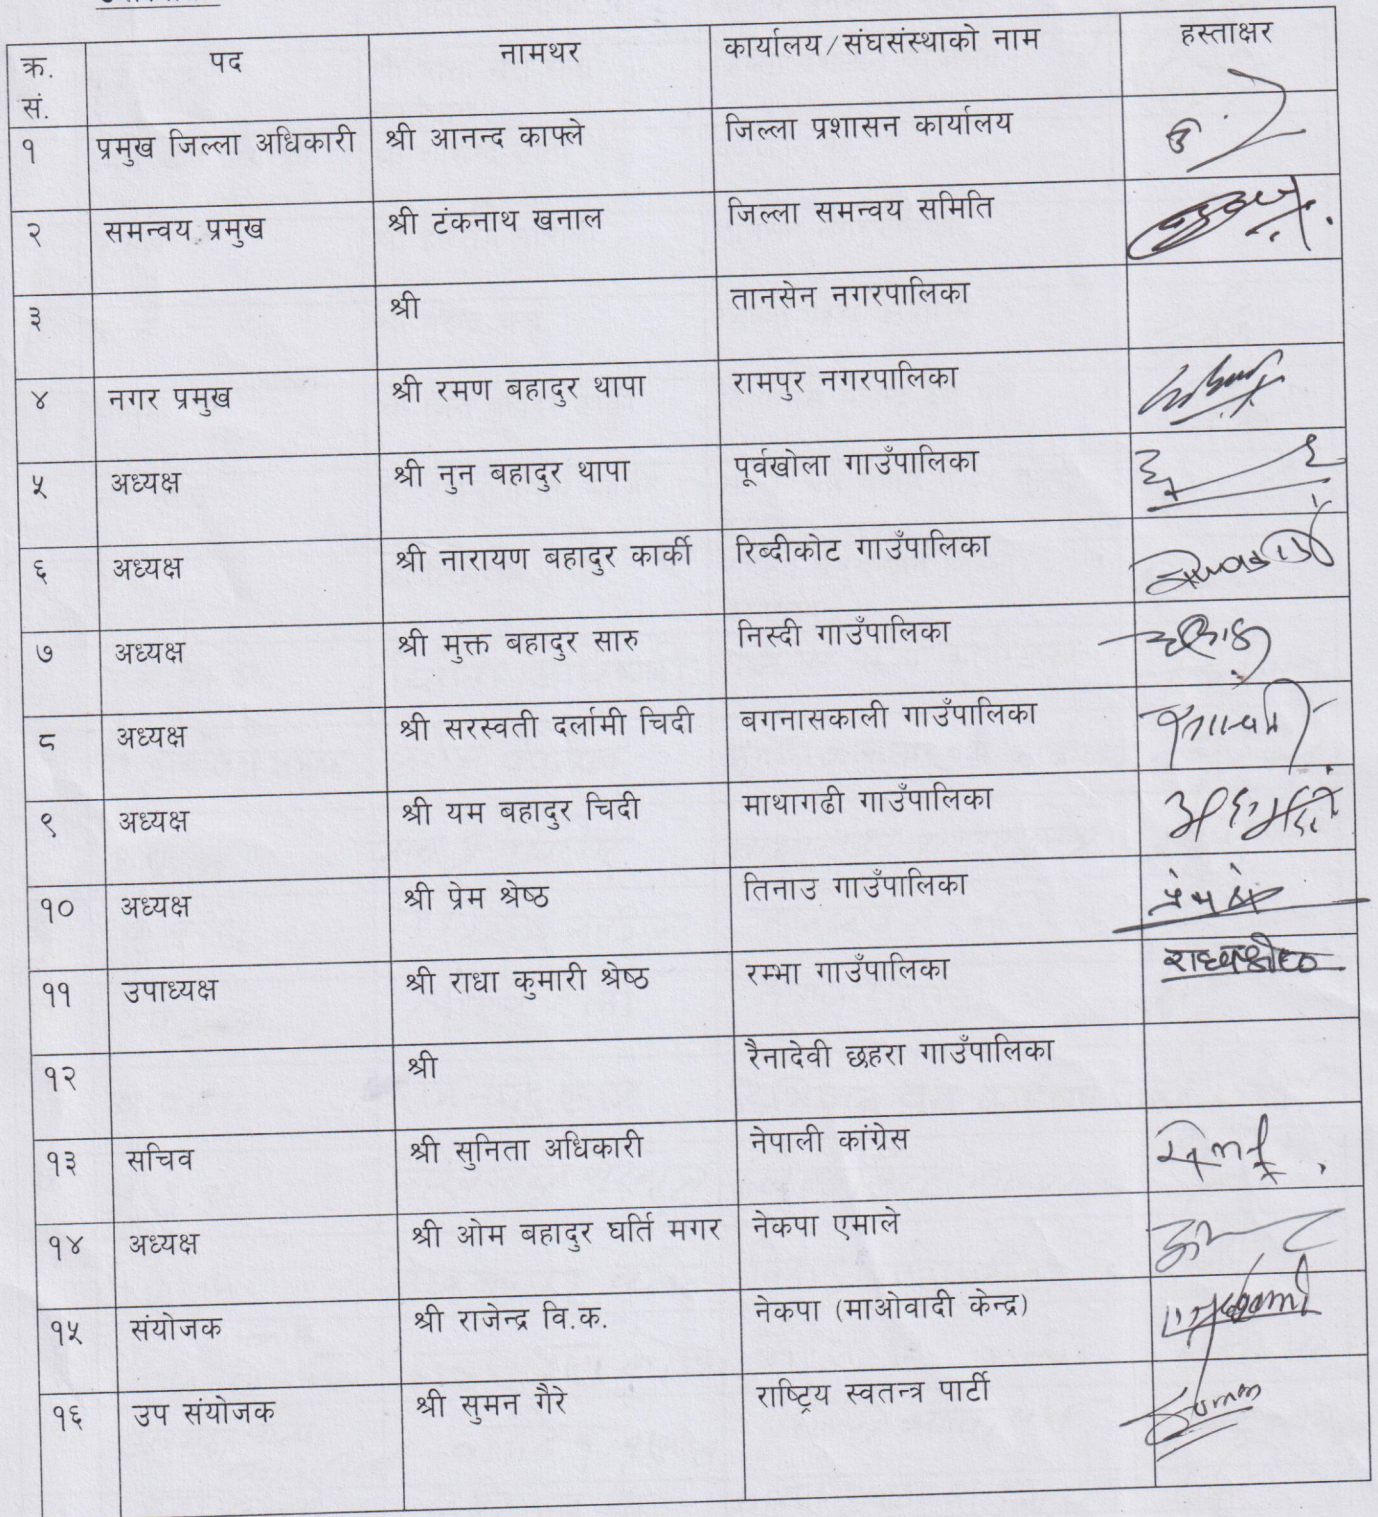 क्र. सं. पद नामथर कार्यालय/संघसंस्थाको नाम हस्ताक्षर
१ प्रमुख जिल्ला अधिकारी श्री आनन्द काफ्ले जिल्ला प्रशासन कार्यालय
२ समन्वय प्रमुख श्री टंकनाथ खनाल जिल्ला समन्वय समिति
३ श्री तानसेन नगरपालिका
४ नगर प्रमुख श्री रमण बहादुर थापा रामपुर नगरपालिका
५ अध्यक्ष श्री नुन बहादुर थापा पूर्वखोला गाउँपालिका
६ अध्यक्ष श्री नारायण बहादुर कार्की रिब्दीकोट गाउँपालिका
७ अध्यक्ष श्री मुक्त बहादुर सारु निस्दी गाउँपालिका
८ अध्यक्ष श्री सरस्वती दर्लामी चिदी बगनासकाली गाउँपालिका
९ अध्यक्ष श्री यम बहादुर चिदी माथागढी गाउँपालिका
१० अध्यक्ष श्री प्रेम श्रेष्ठ तिनाउ गाउँपालिका
११ उपाध्यक्ष श्री राधा कुमारी श्रेष्ठ रम्भा गाउँपालिका
१२ श्री रैनादेवी छहरा गाउँपालिका
१३ सचिव श्री सुनिता अधिकारी नेपाली कांग्रेस
१४ अध्यक्ष श्री ओम बहादुर घर्ति मगर नेकपा एमाले
१५ संयोजक श्री राजेन्द्र वि.क. नेकपा (माओवादी केन्द्र)
१६ उप संयोजक श्री सुमन गैरे राष्ट्रिय स्वतन्त्र पार्टी